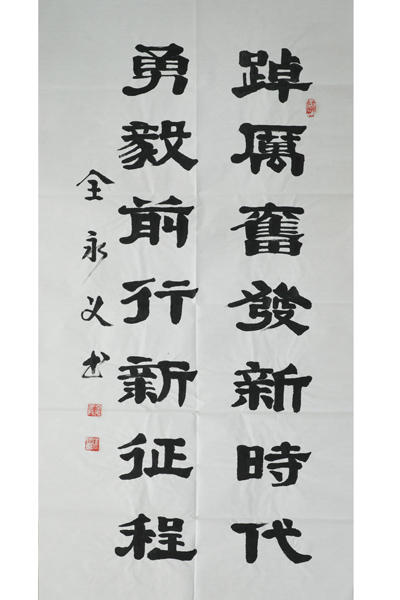 踔厲奮發新時代
勇毅前行新征程
全永义书